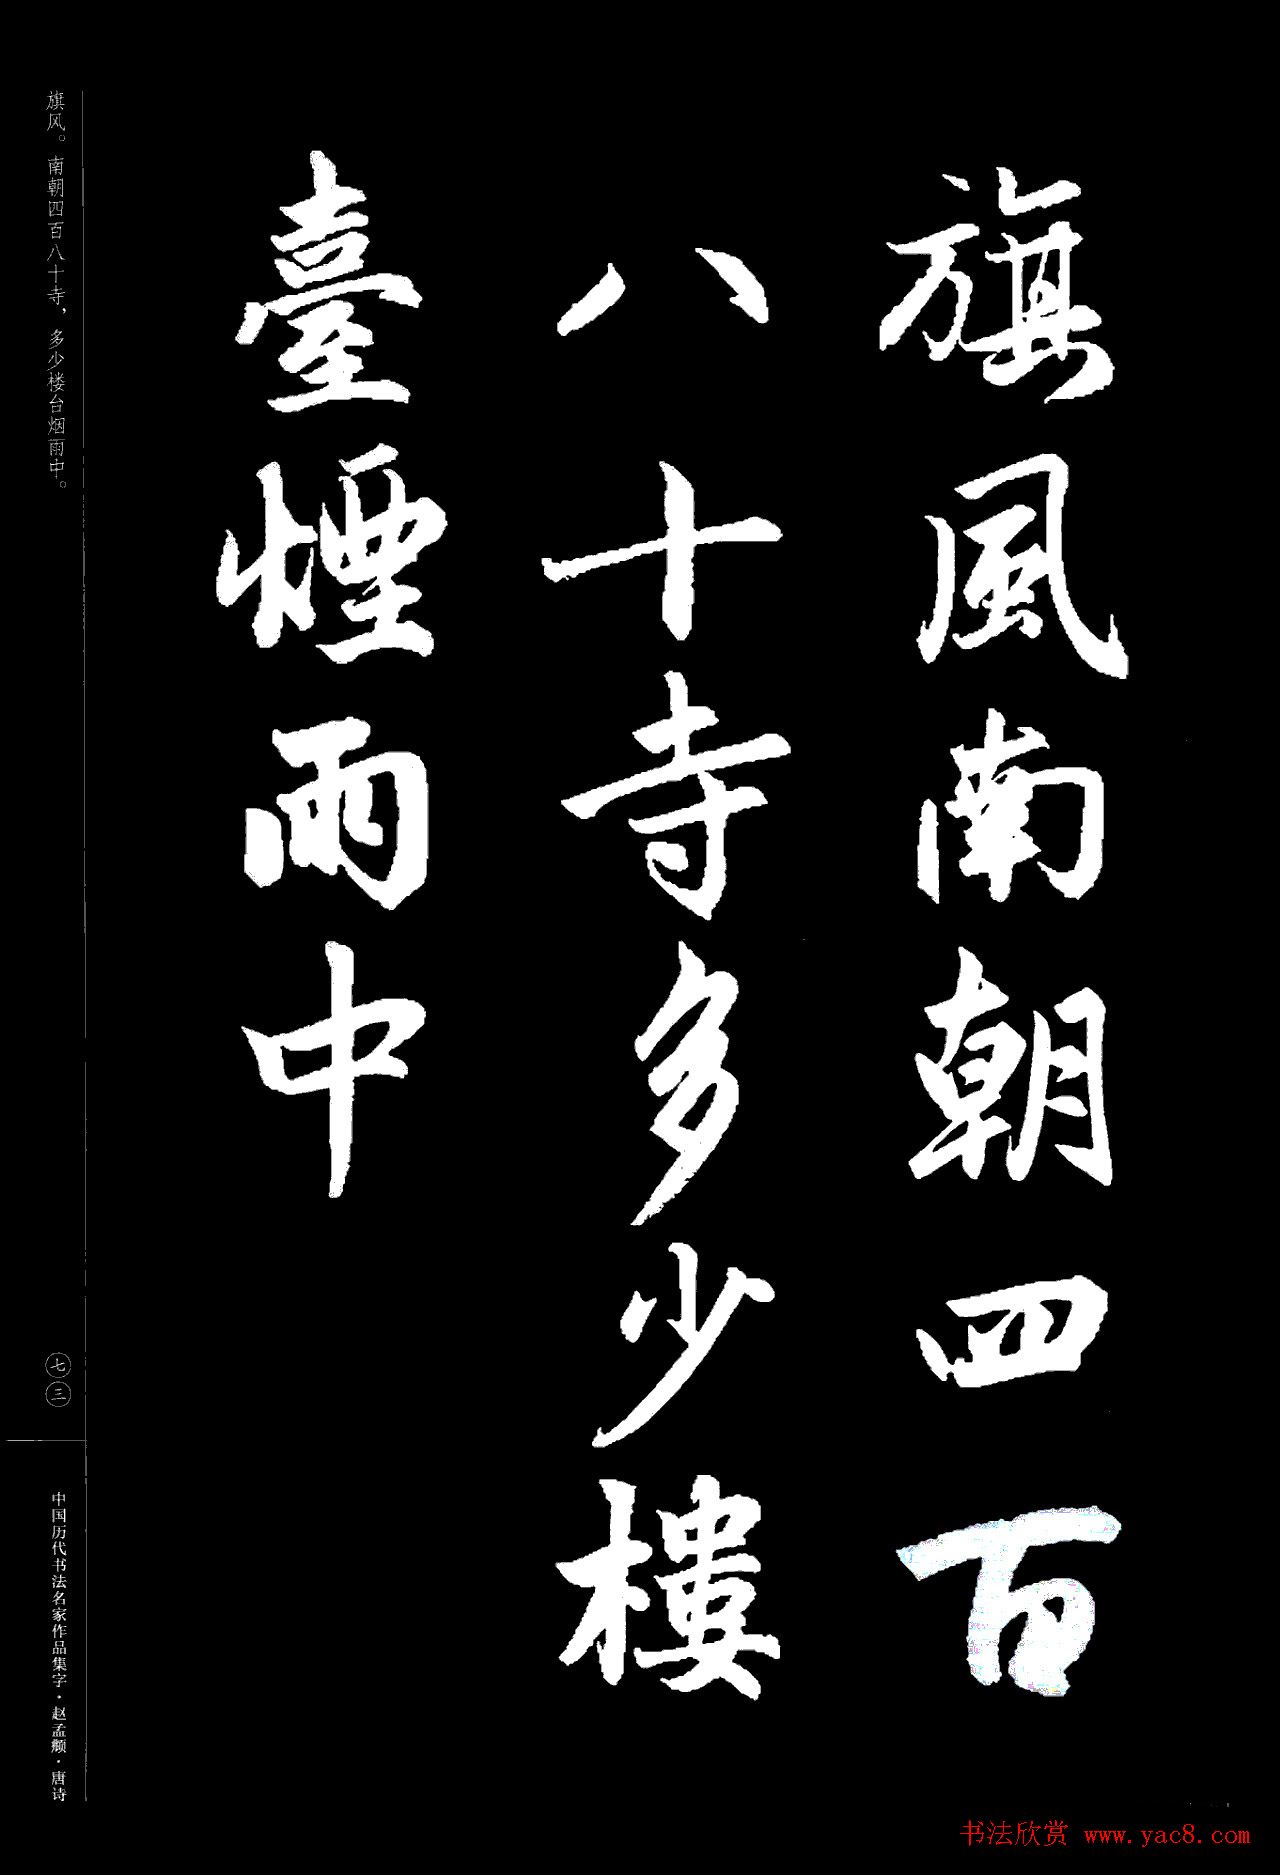 旗風南朝四百
八十寺多少樓
臺煙雨中
旗风。南朝四百八十寺，多少楼台烟雨中。
七三
中国历代书法名家作品集字·赵孟頫·唐诗
书法欣赏 www.yac8.com